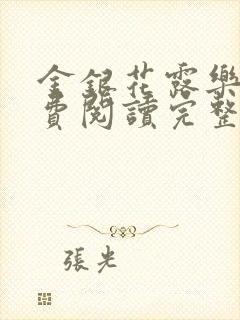 金銀花露樂
費閱讀完整
張光